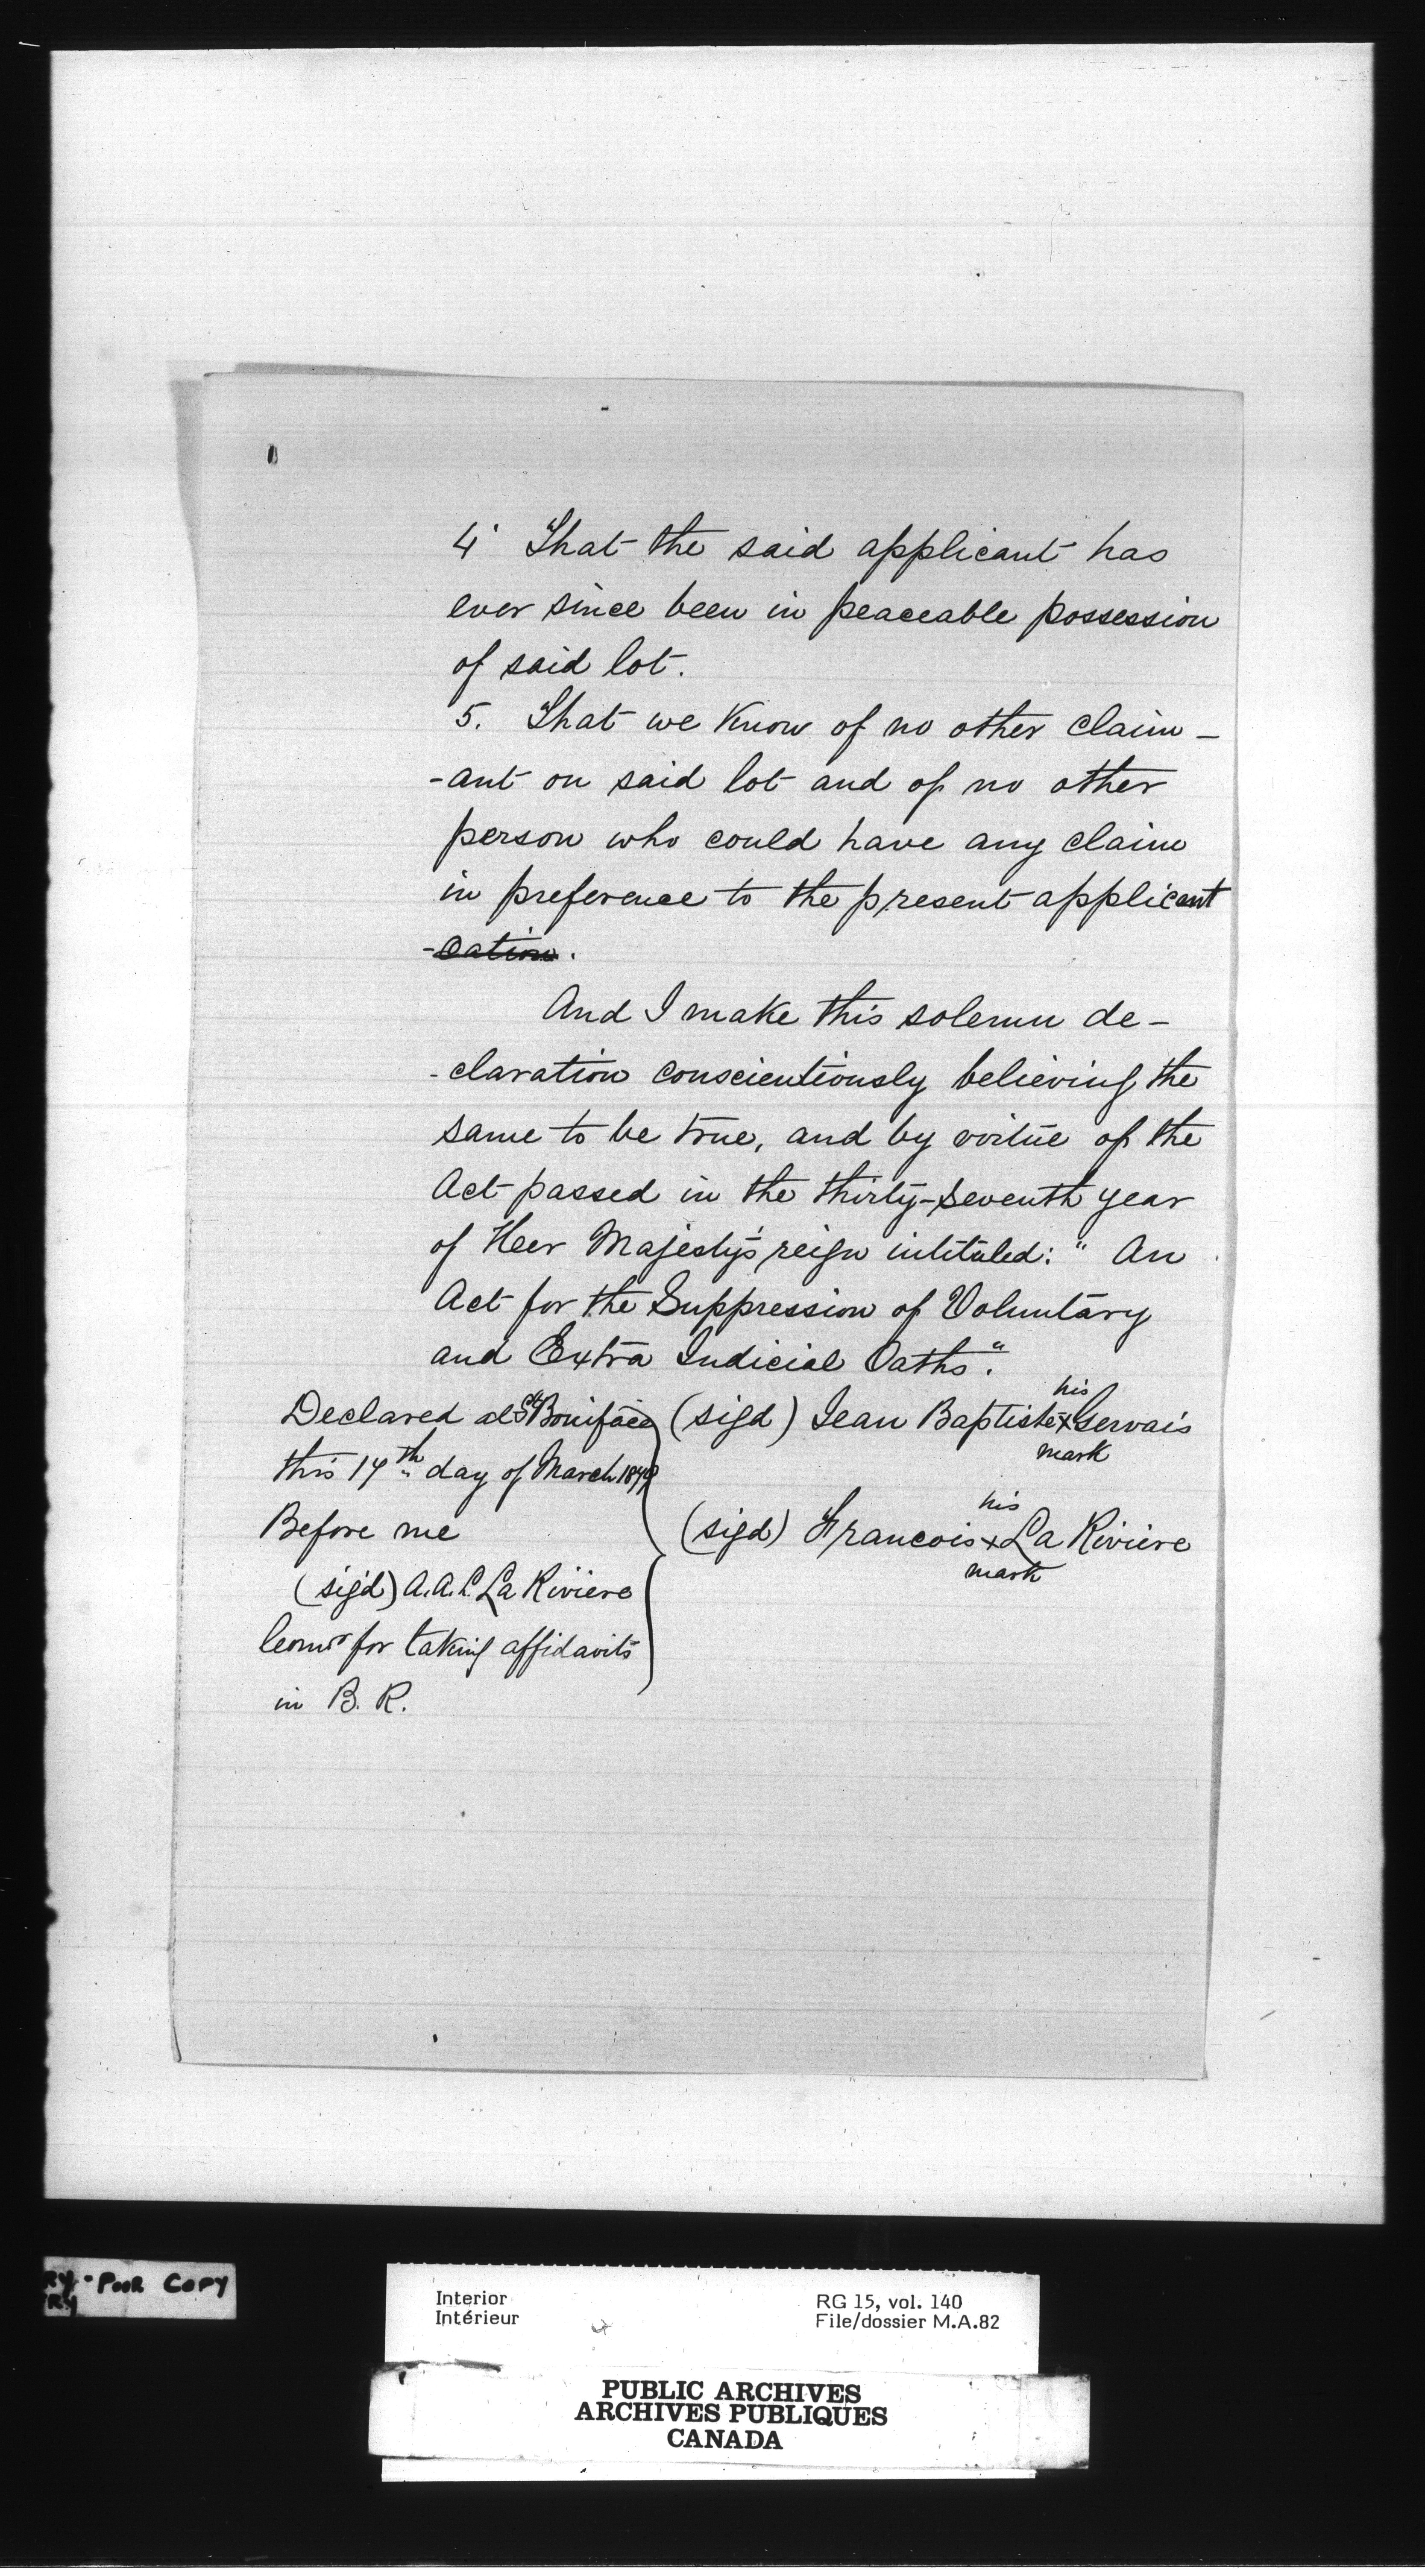 4. That the said applicant has
ever since been in peaceable possession
of said lot.
5. That we know of no other claim-
-ant on said lot and of no other
person who could have any claim
in preference to the present applicant
-cation.
And I make this solemn de-
-claration conscientiously believing the
same to be true, and by virtue of the
Act passed in the thirty-seventh year
of Heer Majesty's reign intituled: "An
Act for the Suppression of Voluntary
and Extra Judicial Oaths".
Declared at St Boniface
this 14th day of March 1879
Before me
(sigd) A.A.C. La Rivière
Comr for taking affidavits
in B. R.
his
(sigd) Jean Baptiste x Gervais
mark
his
(sigd) Francois x La Riviere
mark
RY - POOR COPY
RY
Interior
Intérieur
RG 15, vol. 140
File/dossier M.A.82
PUBLIC ARCHIVES
ARCHIVES PUBLIQUES
CANADA